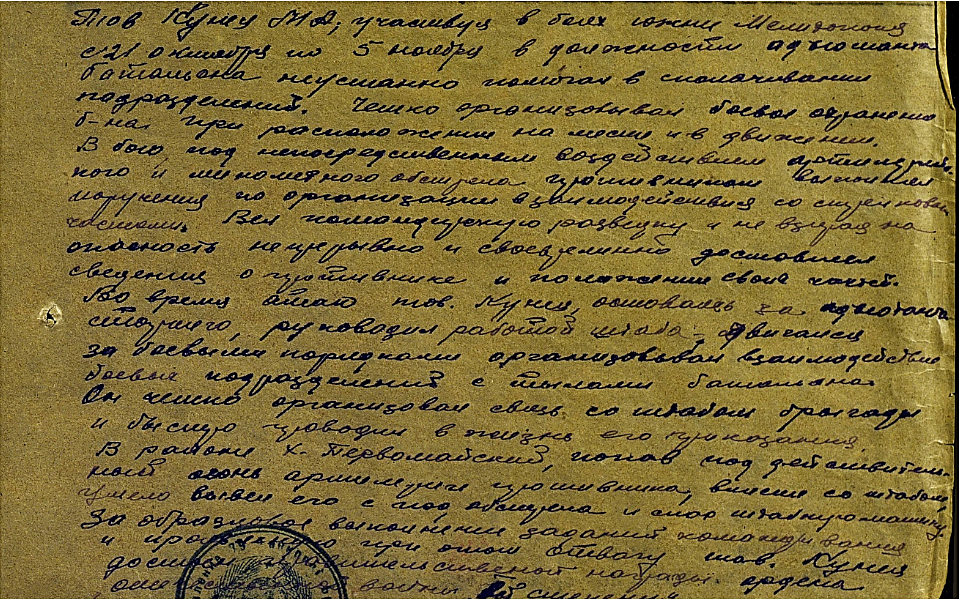 Тов Кунец М.А, участвуя в боях южнее Мелитополя
с 21 октября по 5 ноября в должности адъютанта
батальона неустанно помогал в сколачивании
подразделений. Четко организовывал боевое охранение
б-на при расположении на месте и в движении.
В бою под непосредственным воздействием артиллерийс-
кого и минометного обстрела противником выполнял
поручения по организации взаимодействия со стрелковыми
частями. Вел командирскую разведку и не взирая на
опасность непрерывно и своевременно доставлял
сведения о противнике и положении своих частей.
Во время атак тов. Кунец, оставаясь за адъютанта
старшего, руководил работой штаба; двигаясь
за боевыми порядками организовывал взаимодействие
боевых подразделений с тылами батальона.
Он четко организовал связь со штабом бригады
и быстро проводил в жизнь его приказания
В районе х. Первомайский, попав под действитель-
ный огонь артиллерии противника, вместе со штабом,
умело вывел его с под обстрела и спас штабную машину.
За образцовое выполнение заданий командования
и при этом отвагу тов. Кунец
достоин правительственной награды ордена
войны степени